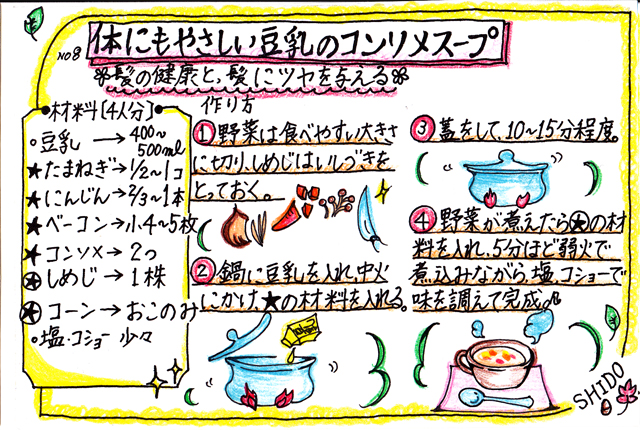 NO8 体にもやさしい豆乳のコンソメスープ
❀髪の健康と、髪にツヤを与える❀
材料[4人分]
○豆乳→400~500ml
★たまねぎ→1/2~1コ
★にんじん→2/3~1本
★ベーコン→小4~5枚
★コンソメ→2つ
⍟しめじ→1株
⍟コーン→おこのみ
○塩・コショー 少々
作り方
①野菜は食べやすい大きさ
に切り、しめじはいしづきを
とっておく。
②鍋に豆乳を入れ、中火
にかけ、★の材料を入れる。
③蓋をして、10~15分程度。
④野菜が煮えたら⍟の材
料を入れ、5分ほど弱火で
煮込みながら、塩、コショーで
味を調えて完成。
SHIDO